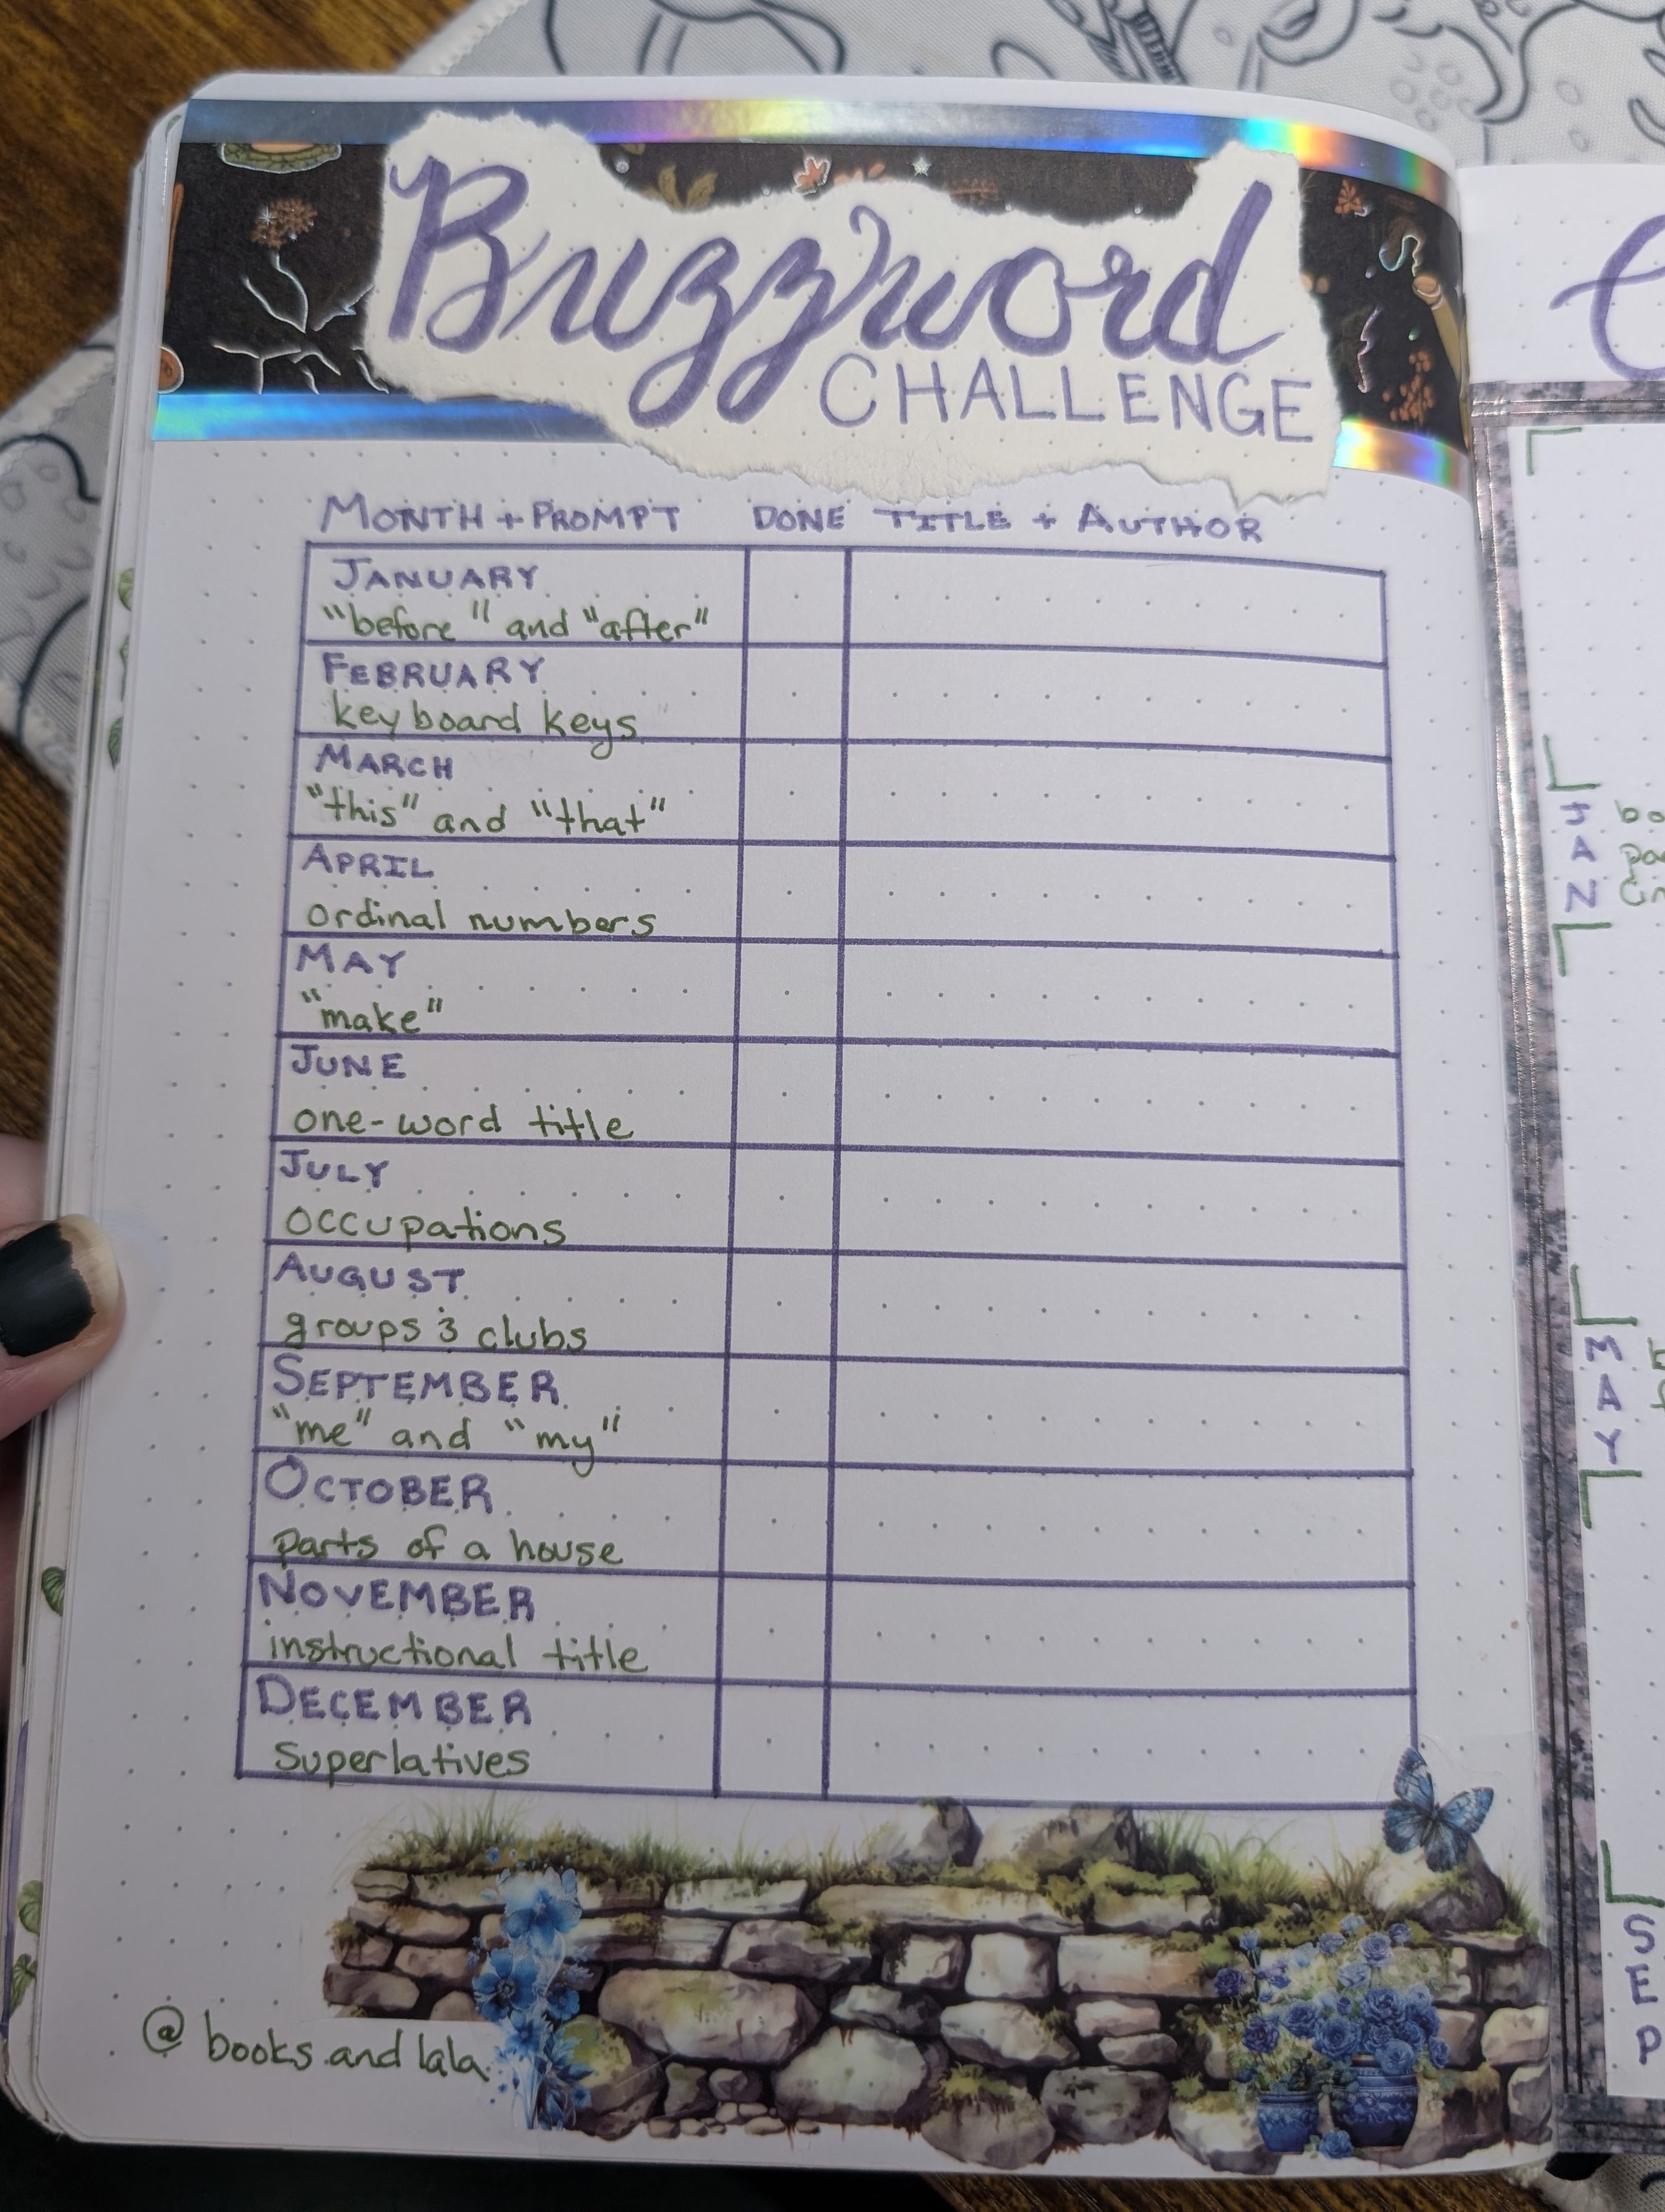 Buzzword
CHALLENGE
MONTH + PROMPT DONE TITLE + AUTHOR
JANUARY
"before" and "after"
FEBRUARY
keyboard keys
MARCH
"this" and "that"
APRIL
ordinal numbers
MAY
"make"
JUNE
one-word title
JULY
occupations
AUGUST
groups & clubs
SEPTEMBER
"me" and "my"
OCTOBER
parts of a house
NOVEMBER
instructional title
DECEMBER
superlatives
@booksandlala
JAN
MAY
SEP